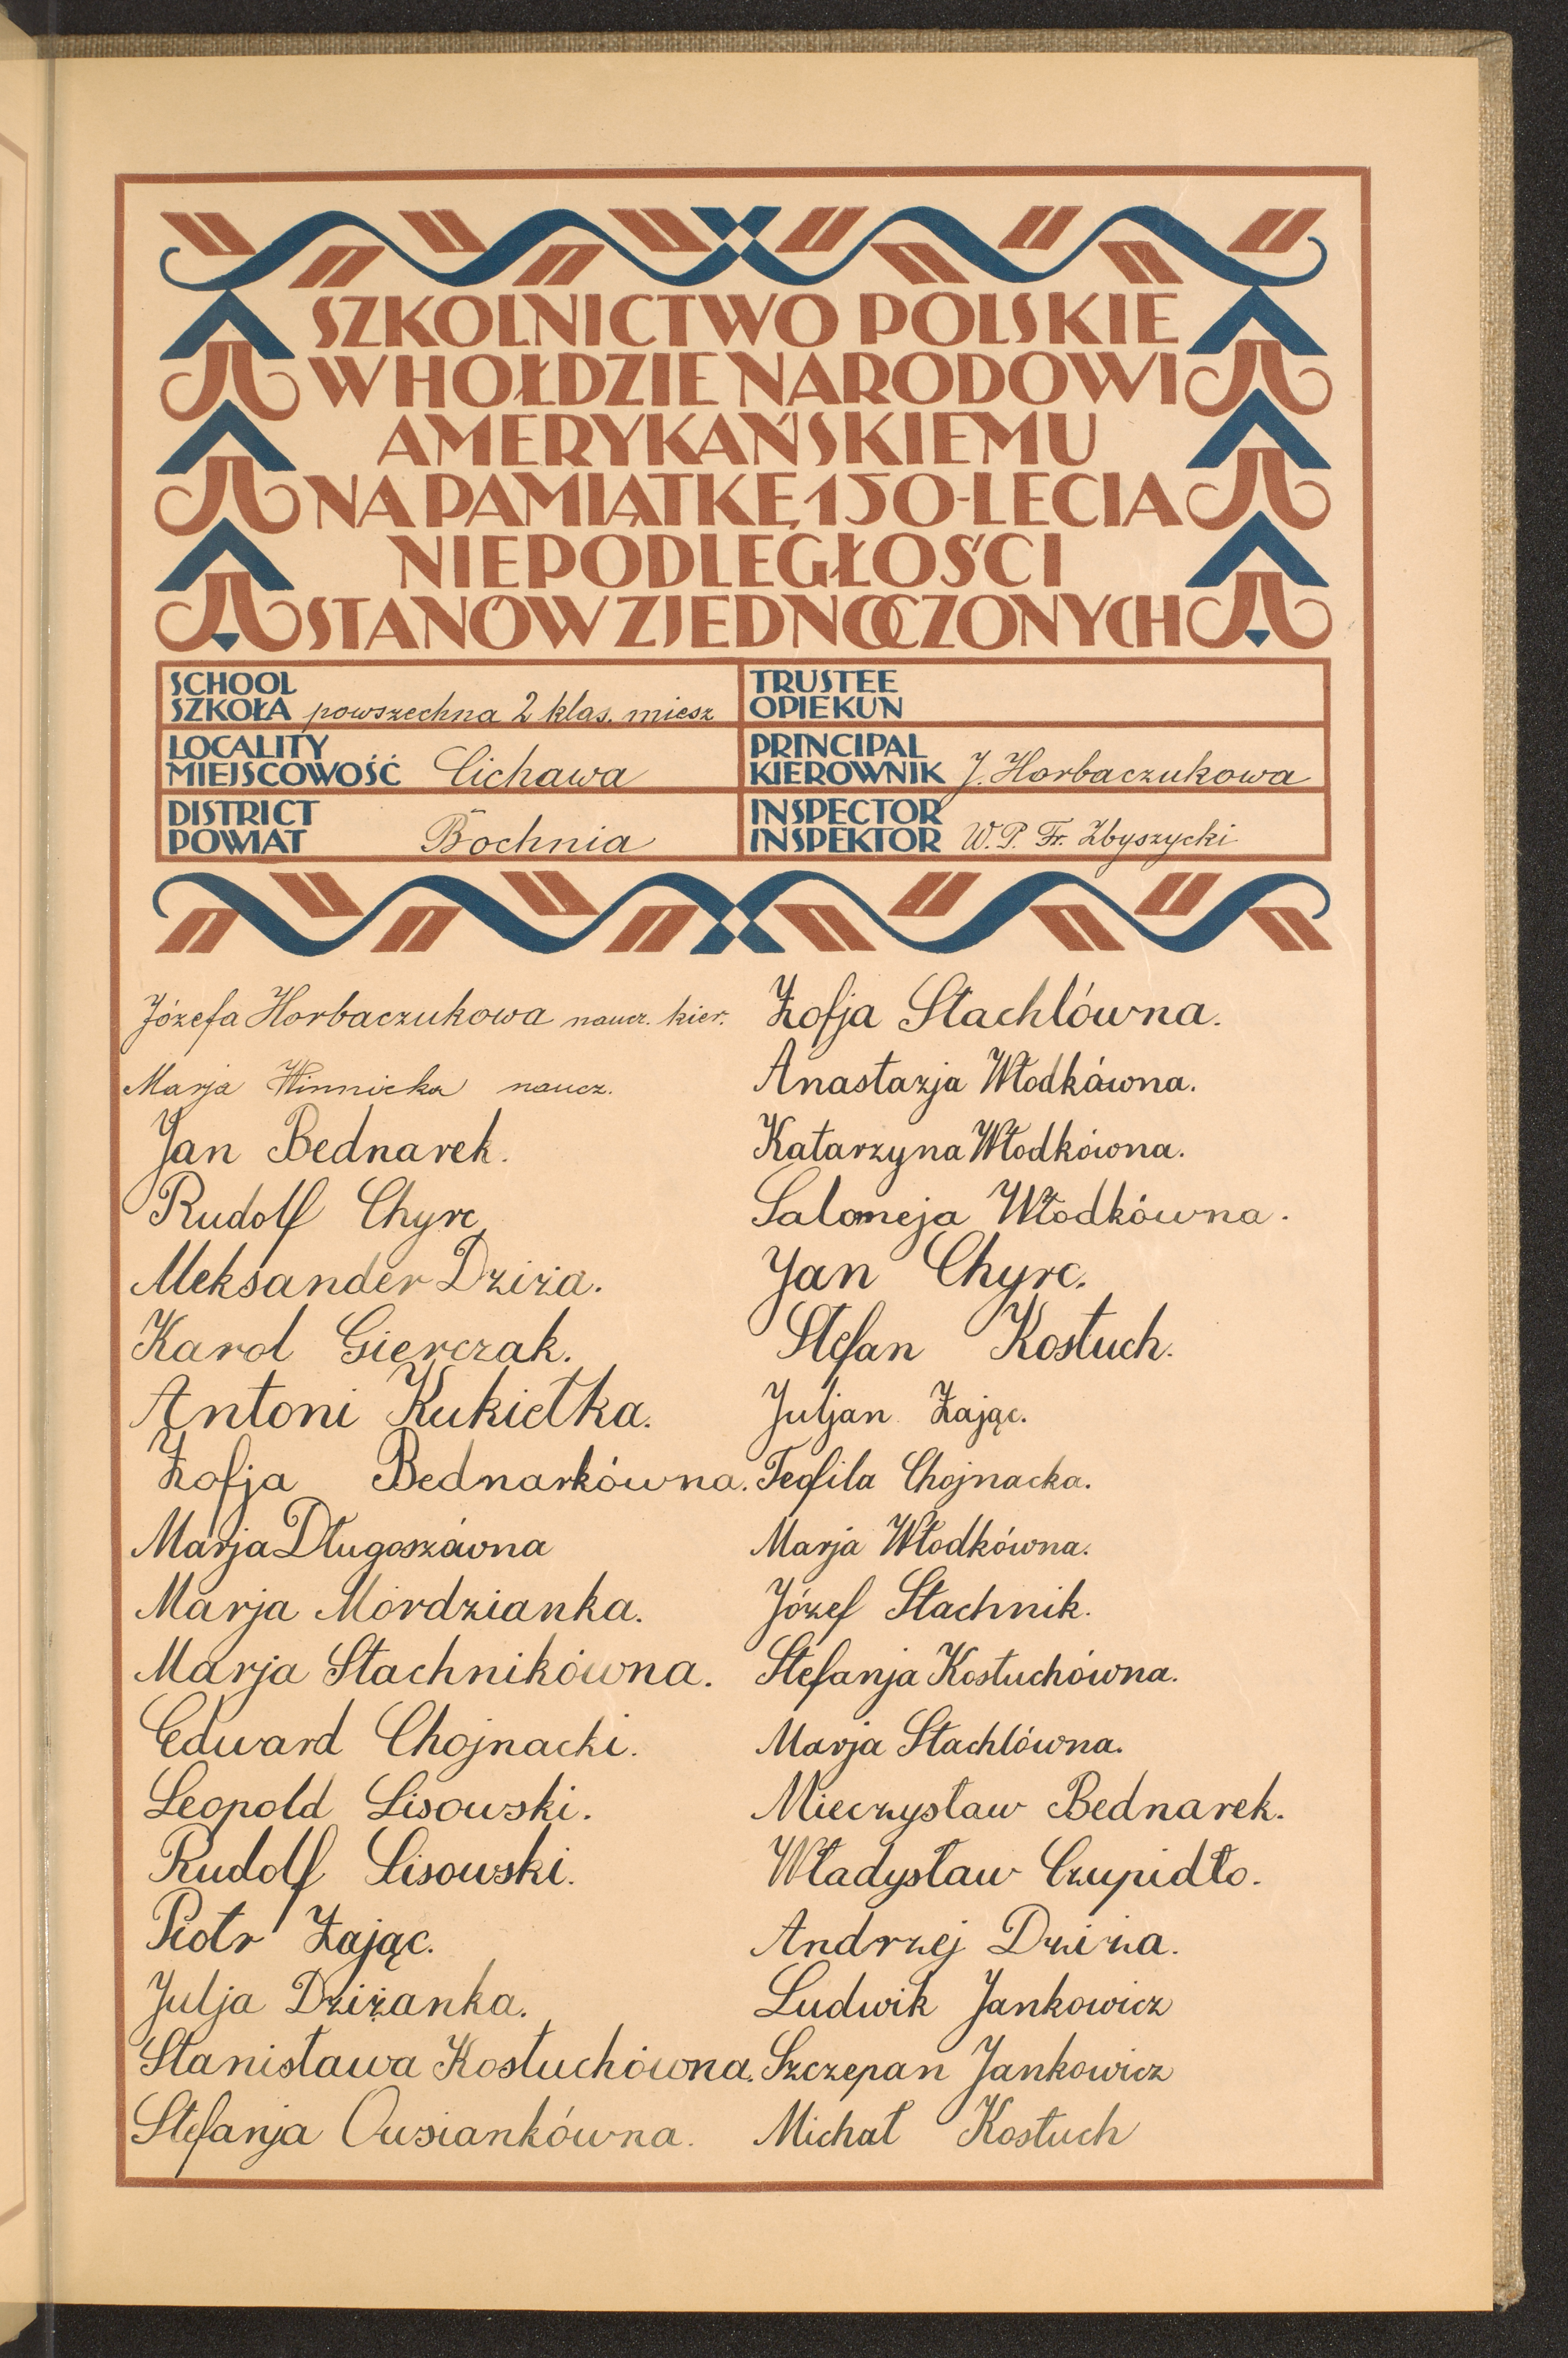 SZKOLNICTWO POLSKIE
W HOŁDZIE NARODOWI
AMERYKAŃSKIEMU
NA PAMIĄTKĘ 150-LECIA
NIEPODLEGŁOŚCI
STANÓW ZJEDNOCZONYCH
SCHOOL
SZKOŁA powszechna 2 klas. miesz
TRUSTEE
OPIEKUN
LOCALITY
MIEJSCOWOŚĆ Cichawa
PRINCIPAL
KIEROWNIK J. Horbaczukowa
DISTRICT
POWIAT Bochnia
INSPECTOR
INSPEKTOR W. P. Fr. Zbyszycki
Józefa Horbaczukowa naucz. kier.
Marja Winnicka naucz.
Jan Bednarek.
Rudolf Chyrc
Aleksander Dziża.
Karol Gierczak.
Antoni Kukiełka.
Zofja Bednarkówna.
Marja Długoszówna
Marja Mordzianka.
Marja Stachnikówna.
Edward Chojnacki.
Leopold Lisowski.
Rudolf Lisowski.
Piotr Zając.
Julja Dziżanka.
Stanisława Kostuchówna.
Stefanja Owsiankówna.
Zofja Stachlówna.
Anastazja Włodkówna.
Katarzyna Włodkówna.
Salomeja Włodkówna.
Jan Chyrc.
Stefan Kostuch.
Juljan Zając.
Teofila Chojnacka.
Marja Włodkówna.
Józef Stachnik.
Stefanja Kostuchówna.
Marja Stachlówna.
Mieczysław Bednarek.
Władysław Czupidło.
Andrzej Dziża.
Ludwik Jankowicz
Szczepan Jankowicz
Michał Kostuch